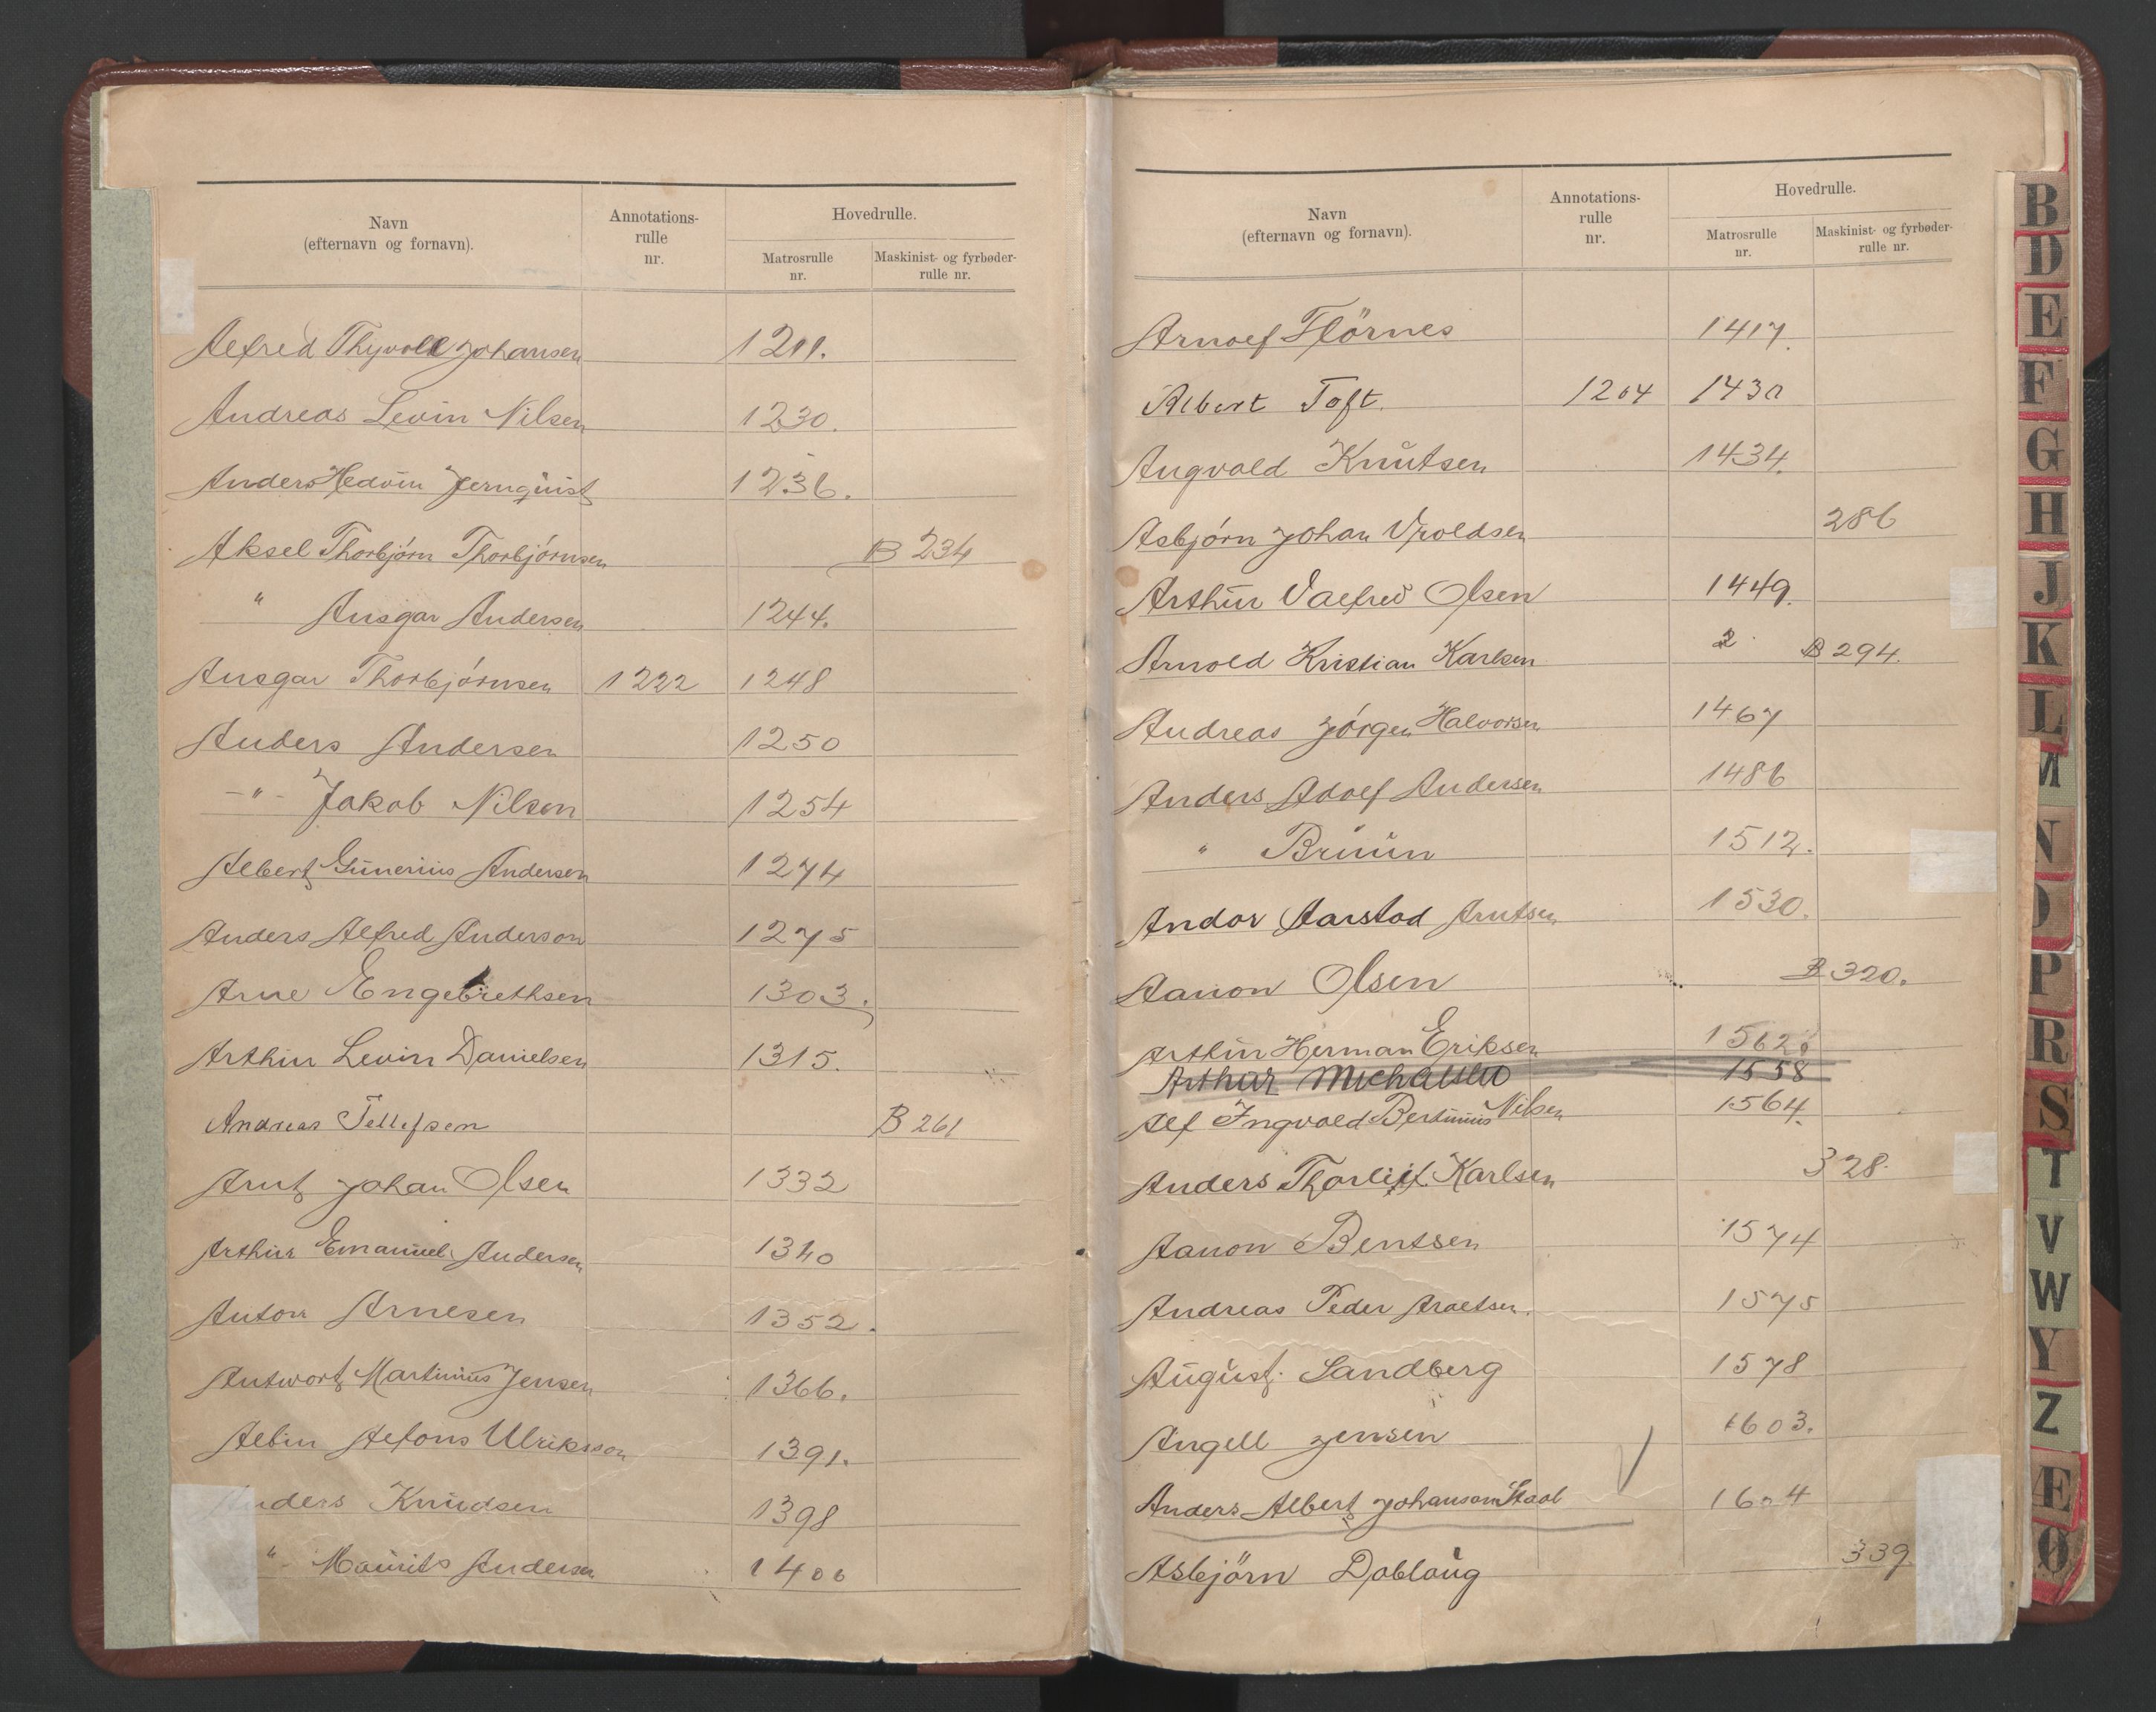 Navn
(efternavn og fornavn).
Annotations-
rulle
nr.
Hovedrulle.
Matrosrulle
nr.
Maskinist- og fyrbøder-
rulle nr.
Alfred Thyvold Johansen 1211.
Andreas Levin Nilsen 1230.
Anders Hedvin Jernquist 1236.
Aksel Thorbjörn Thorbjörnsen B 234
" Ansgar Andersen 1244.
Ansgar Thorbjörnsen 1222 1248
Anders Andersen 1250
-"- Jakob Nilsen 1254
Albert Gunerius Andersen 1274
Anders Alfred Anderson 1275
Arne Engebrethsen 1303.
Arthur Levin Danielsen 1315.
Andreas Tellefsen B 261
Arnt Johan Olsen 1332
Arthur Emanuel Andersen 1340
Anton Arnesen 1352.
Antwort Martinius Jensen 1366.
Albin Alfons Ulriksson 1391.
nders Knudsen 1398
" Mourits Andersen 1400
Navn
(efternavn og fornavn).
Annotations-
rulle
nr.
Hovedrulle.
Matrosrulle
nr.
Maskinist- og fyrbøder-
rulle nr.
Arnolf Flörnes 1417.
Albert Toft. 1204 1430
Angvald Knutsen 1434.
Asbjørn Johan Vroldsen 286
Arthur Valfred Olsen 1449.
Arnold Kristian Karlsen 2 B 294.
Andreas Jörgen Halvorsen 1467
Anders Adolf Andersen 1486
" Bruun 1512.
Andor Aarstad Arntsen 1530.
Aanon Olsen B 320.
Arthur Herman Eriksen 1562
Arthur 1558
Alf Ingvald Bertinius Nilsen 1564.
Anders Karlsen 328.
Aanon Bentsen 1574
Andreas Peder 1575
August Sandberg 1578
Angell Jensen 1603.
Anders Albert Johanson Staal 1604
Asbjörn Doblaug 339
B
D
E
F
G
H
J
K
L
M
N
O
P
R
S
T
V
W
Y
Z
Æ
Ø